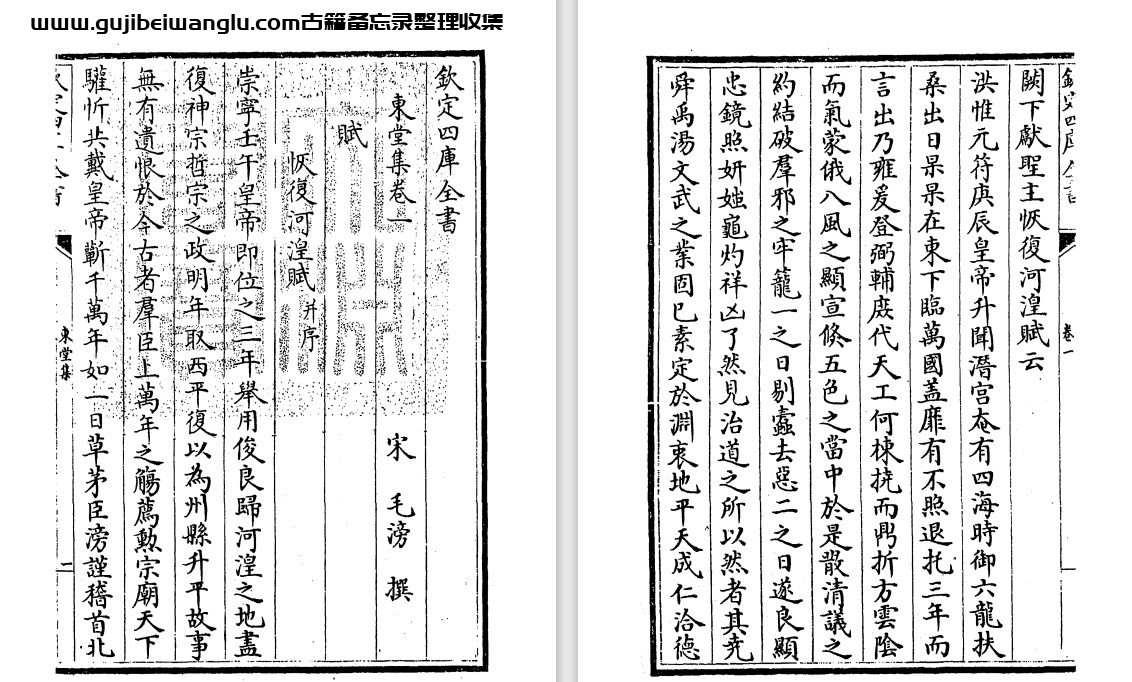 www.gujibeiwanglu.com古籍备忘录整理收集
欽定四庫全書
東堂集卷一
宋 毛滂 撰
賦
恢復河湟賦 并序
崇寧壬午皇帝即位之三年舉用俊良歸河湟之地盡
復神宗哲宗之政明年取西平復以為州縣升平故事
無有遺恨於今古者羣臣上萬年之觴薦勲宗廟天下
驩忻共戴皇帝蘄千萬年如一日草茅臣滂謹稽首北
東堂集
闕下獻聖主恢復河湟賦云
洪惟元符庚辰皇帝升聞潛宫奄有四海時御六龍扶
桑出日杲杲在東下臨萬國盖靡有不照退托三年而
言出乃雍爰登弼輔廐代天工何棟撓而鼎折方雲陰
而氣蒙俄八風之顯宣倐五色之當中於是散清議之
約結破羣邪之牢籠一之日剔蠧去惡二之日遂良顯
忠鏡照妍媸龜灼祥凶了然見治道之所以然者其堯
舜禹湯文武之業固已素定於淵衷地平天成仁洽德
卷一